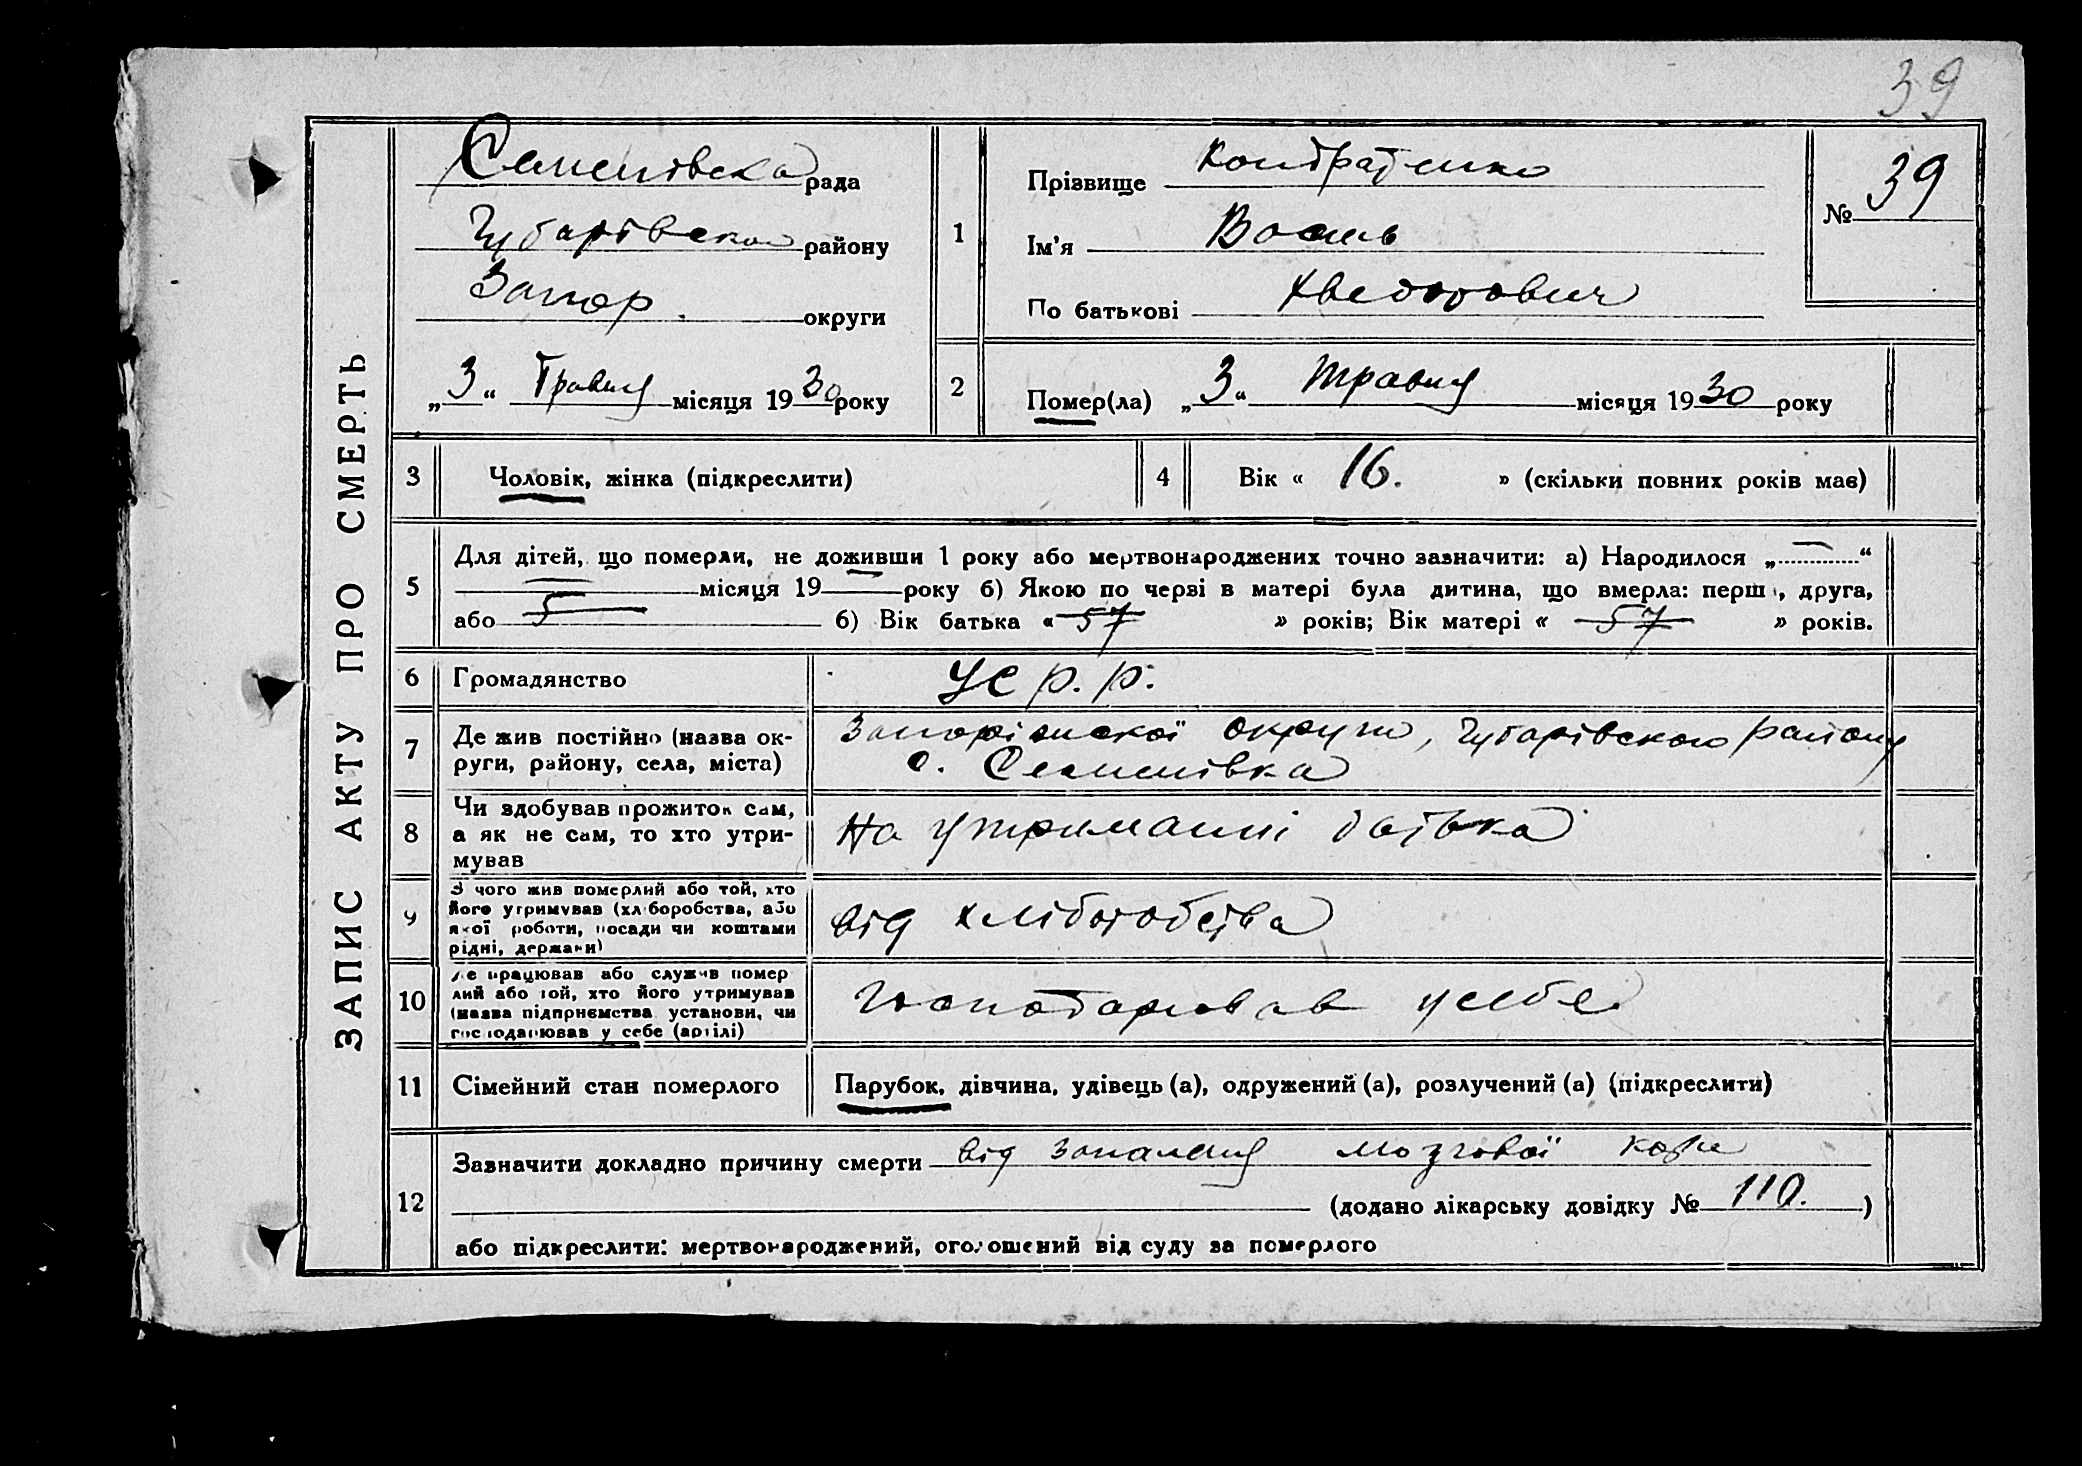 39
ЗАПИС АКТУ ПРО СМЕРТЬ
Семенівска рада
Чубарівского району
Запор. округи
„3“ Травня місяця 1930 року
1
Прізвище Кондратенко
Ім'я Василь
По батькові Хведорович
№ 39
2
Помер(ла) „3“ травня місяця 1930 року
3 Чоловік, жінка (підкреслити)
4 Вік « 16. » (скільки повних років має)
5
Для дітей, що померли, не доживши 1 року або мертвонароджених точно зазначити: а) Народилося „—“
— місяця 19— року б) Якою по черзі в матері була дитина, що вмерла: перша, друга,
або 5 б) Вік батька «57» років; Вік матері «57» років.
6 Громадянство УСР.Р.
7 Де жив постійно (назва ок-
руги, району, села, міста)
Запоріжскої округи, Чубарівського району
с. Семенівка
8
Чи здобував прожиток сам,
а як не сам, то хто утри-
мував
На утриманні батька
9
З чого жив померлий або той, хто
його утримував (хліборобства, або
якої роботи, посади чи коштами
рідні, держави)
від хліборобства
10
Де працював або служив помер
лий або той, хто його утримував
(назва підприємства установи, чи
господарював у себе (артілі)
Господарював у себе
11 Сімейний стан померлого Парубок, дівчина, удівець (а), одружений (а), розлучений (а) (підкреслити)
12
Зазначити докладно причину смерти від запалення мозгової кори
(додано лікарську довідку № 110.)
або підкреслити: мертвонароджений, оголошений від суду за померлого